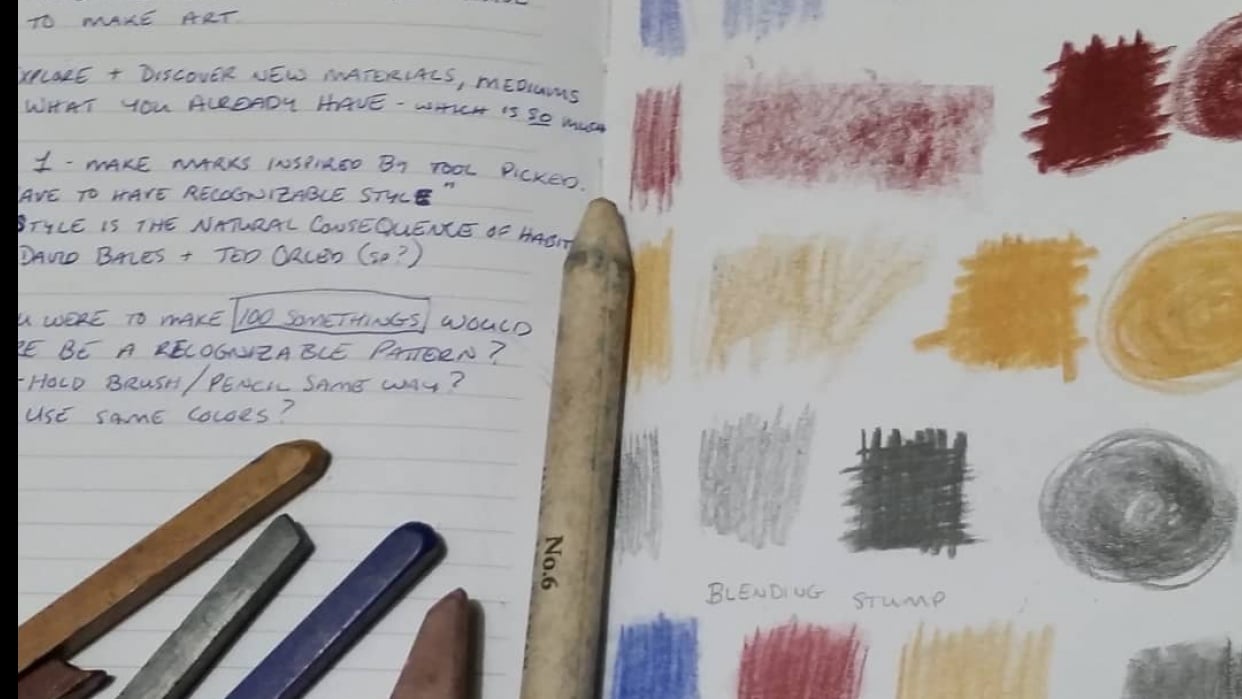 TO MAKE ART
XPLORE + DISCOVER NEW MATERIALS, MEDIUMS
WHAT YOU ALREADY HAVE - WHICH IS SO MUCH
1 - MAKE MARKS INSPIRED BY TOOL PICKED.
AVE TO HAVE RECOGNIZABLE STYLE"
STYLE IS THE NATURAL CONSEQUENCE OF HABIT
DAVID BALES + TED ORLED (SP?)
U WERE TO MAKE 100 SOMETHINGS WOULD
RE BE A RECOGNIZABLE PATTERN?
- HOLD BRUSH/PENCIL SAME WAY?
USE SAME COLORS?
No.6
BLENDING STUMP